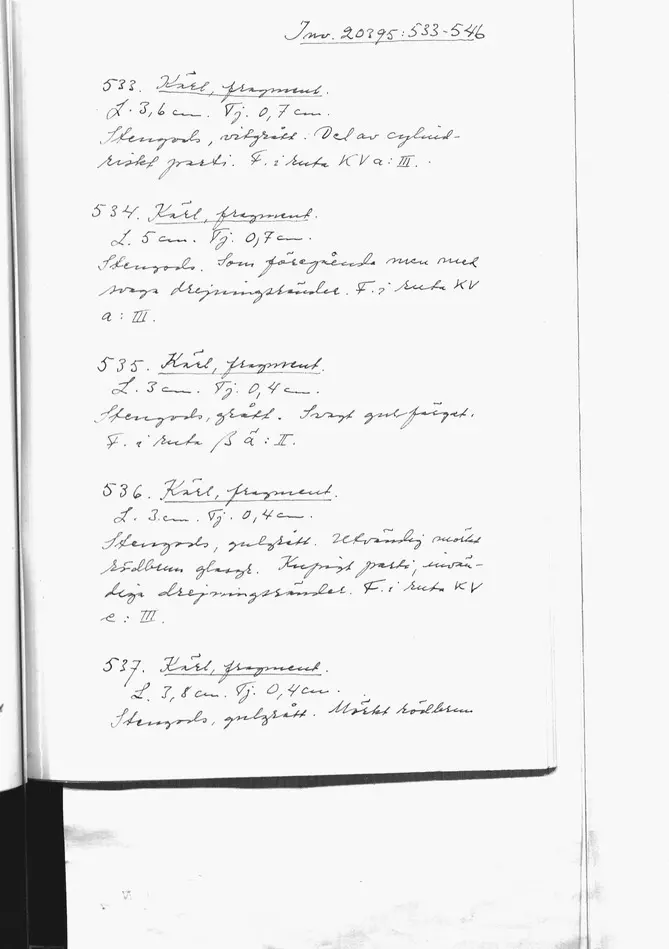 Inv. 20395:533-546
533. Kärl, fragment.
L. 3,6 cm. Tj. 0,7 cm.
Stengods, vitgrått. Del av cylind-
riskt parti. F. i ruta KV a: III.
534. Kärl, fragment.
L. 5 cm. Tj. 0,7 cm.
Stengods. Som föregående men med
svaga drejningsränder. F. i ruta KV
a: III.
535. Kärl, fragment.
L. 3 cm. Tj. 0,4 cm.
Stengods, grått. Svagt gulfärgat.
F. i ruta β ä: II.
536. Kärl, fragment.
L. 3 cm. Tj. 0,4 cm.
Stengods, gulgrått. Utvändig mörkt
rödbrun glasyr. Kupigt parti, invän-
diga drejningsränder. F. i ruta KV
e: III.
537. Kärl, fragment.
L. 3,8 cm. Tj. 0,4 cm.
Stengods, gulgrått. Mörkt rödbrun